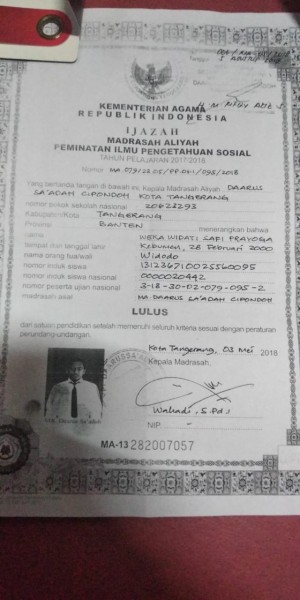 5 AGUSTUS
M. RIFQY AZIZ S
KEMENTERIAN AGAMA
REPUBLIK INDONESIA
IJAZAH
MADRASAH ALIYAH
PEMINATAN ILMU PENGETAHUAN SOSIAL
TAHUN PELAJARAN 2017/2018
Yang bertanda tangan di bawah ini, Kepala Madrasah Aliyah DAARUS
SA'ADAH CIPONDOH KOTA TANGERANG
nomor pokok sekolah nasional 20623293
Kabupaten/Kota TANGERANG
Provinsi BANTEN menerangkan bahwa:
nama WEKA WIDATI SAFI PRAYOGA
tempat dan tanggal lahir Kebumen, 28 Februari 2000
nama orang tua/wali Widodo
nomor induk siswa 131236710025560095
nomor induk siswa nasional 0000020442
nomor peserta ujian nasional 3-18-30-02-079-095-2
madrasah asal MA. DAARUS SA'ADAH CIPONDOH
LULUS
dari satuan pendidikan setelah memenuhi seluruh kriteria sesuai dengan peraturan
perundang-undangan.
Kota Tangerang, 03 Mei 2018
Kepala Madrasah,
Wahadi, S.Pd.I
NIP. -
MA-13 282007057